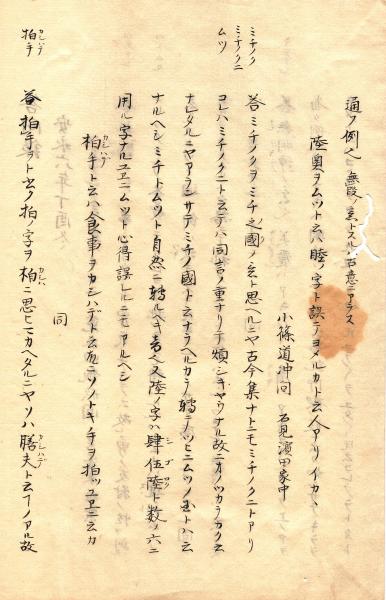 通フ例也無段ノ玄トスルハ古意ニアラス
陸奥ヲムツト云ハ睦ノ字ト誤テヨメルカト云人アリイカヽ
小篠道冲問 石見濱田家中
ミチノク
ミチノクニ
ムツ
答ミチノクヲミチ之國ノ玄ト思ヘルニヤ古今集ナトニモミチノクニトアリ
コレハミチノクニト云テハ同言ノ重ナリテ煩シキヤウナル故ニオノツカラカク云
ナレタルニヤアランサテミチノ國ト云ナラヘルカラ轉テツヒニムツノ玉トハ云
ナルヘシミチトムツト自然ニ轉ルヘキ音也又陸ノ字ハ肆伍陸ト数ノ六ニ
用ル字ナルユヱニムツト心得誤レルニモアルヘシ
拍手ト云ハ食事ヲカシハデト云故ニソノトキ手ヲ拍ツユヱニ云カ
同
拍手
答拍手ヲト云ク拍ノ字ヲ柏ニ思ヒマカヘタルニヤソハ膳夫ト云フノアル故